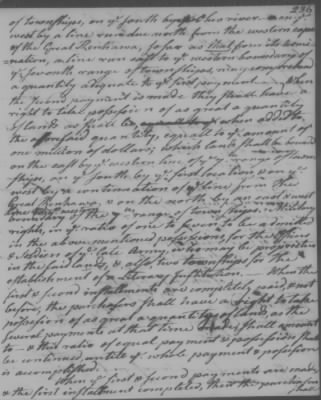 236
of townships, on ye. south by ye. Ohio river & on ye.
west by a line run due north from the western cape
of the Great Kenhawa, so far as that from its termi-
nation, a line run east to ye. western boundary of
ye. seventh range of townships, may comprehend
a quantity adequate to ye. first payment. When
the second payment is made, they shall have a
right to take possession of as great a quantity
of lands as shall be, when added to
the aforesaid quantity, equal to ye. amount of
one million of dollars; which lands shall be bounded
on the east by ye. western line of ye. 7th range of town-
ships, on ye. south by ye. first location, & on ye.
west by a continuation of ye. line from the
Great Kenhawa, & on the north by an east & west
boundary of the 7th range of townships. Military
rights, in ye. ratio of one to seven, to be admitted
in the abovementioned provisions for the officers
& soldiers of ye. late Army,
in the said lands, & also two townships for the
establishment of a Literary Institution. When the
first & second installments are completely paid & not
before, the purchasers shall have a right to take
possession of as great a quantity of land, as the
several payments at that time shall amount
to & this ratio of equal payment & possession shall
be continued, until ye. whole payment & possession
is accomplished.
When ye. first & second payments are made
& the first installment completed, then the purchasers
shall